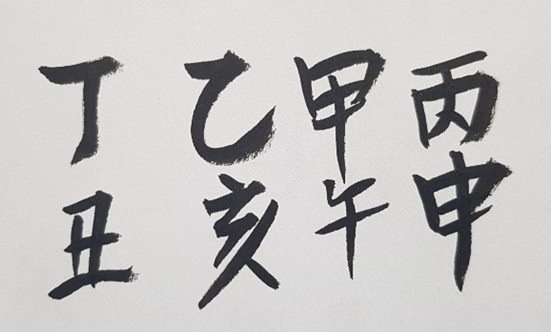 丙申
甲午
乙亥
丁丑